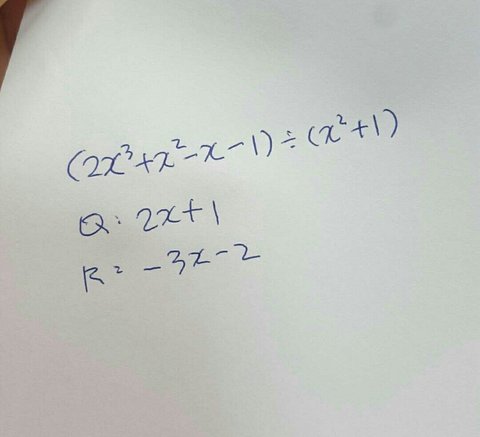 (2x³+x²-x-1)÷(x²+1)
Q: 2x+1
R: -3x-2